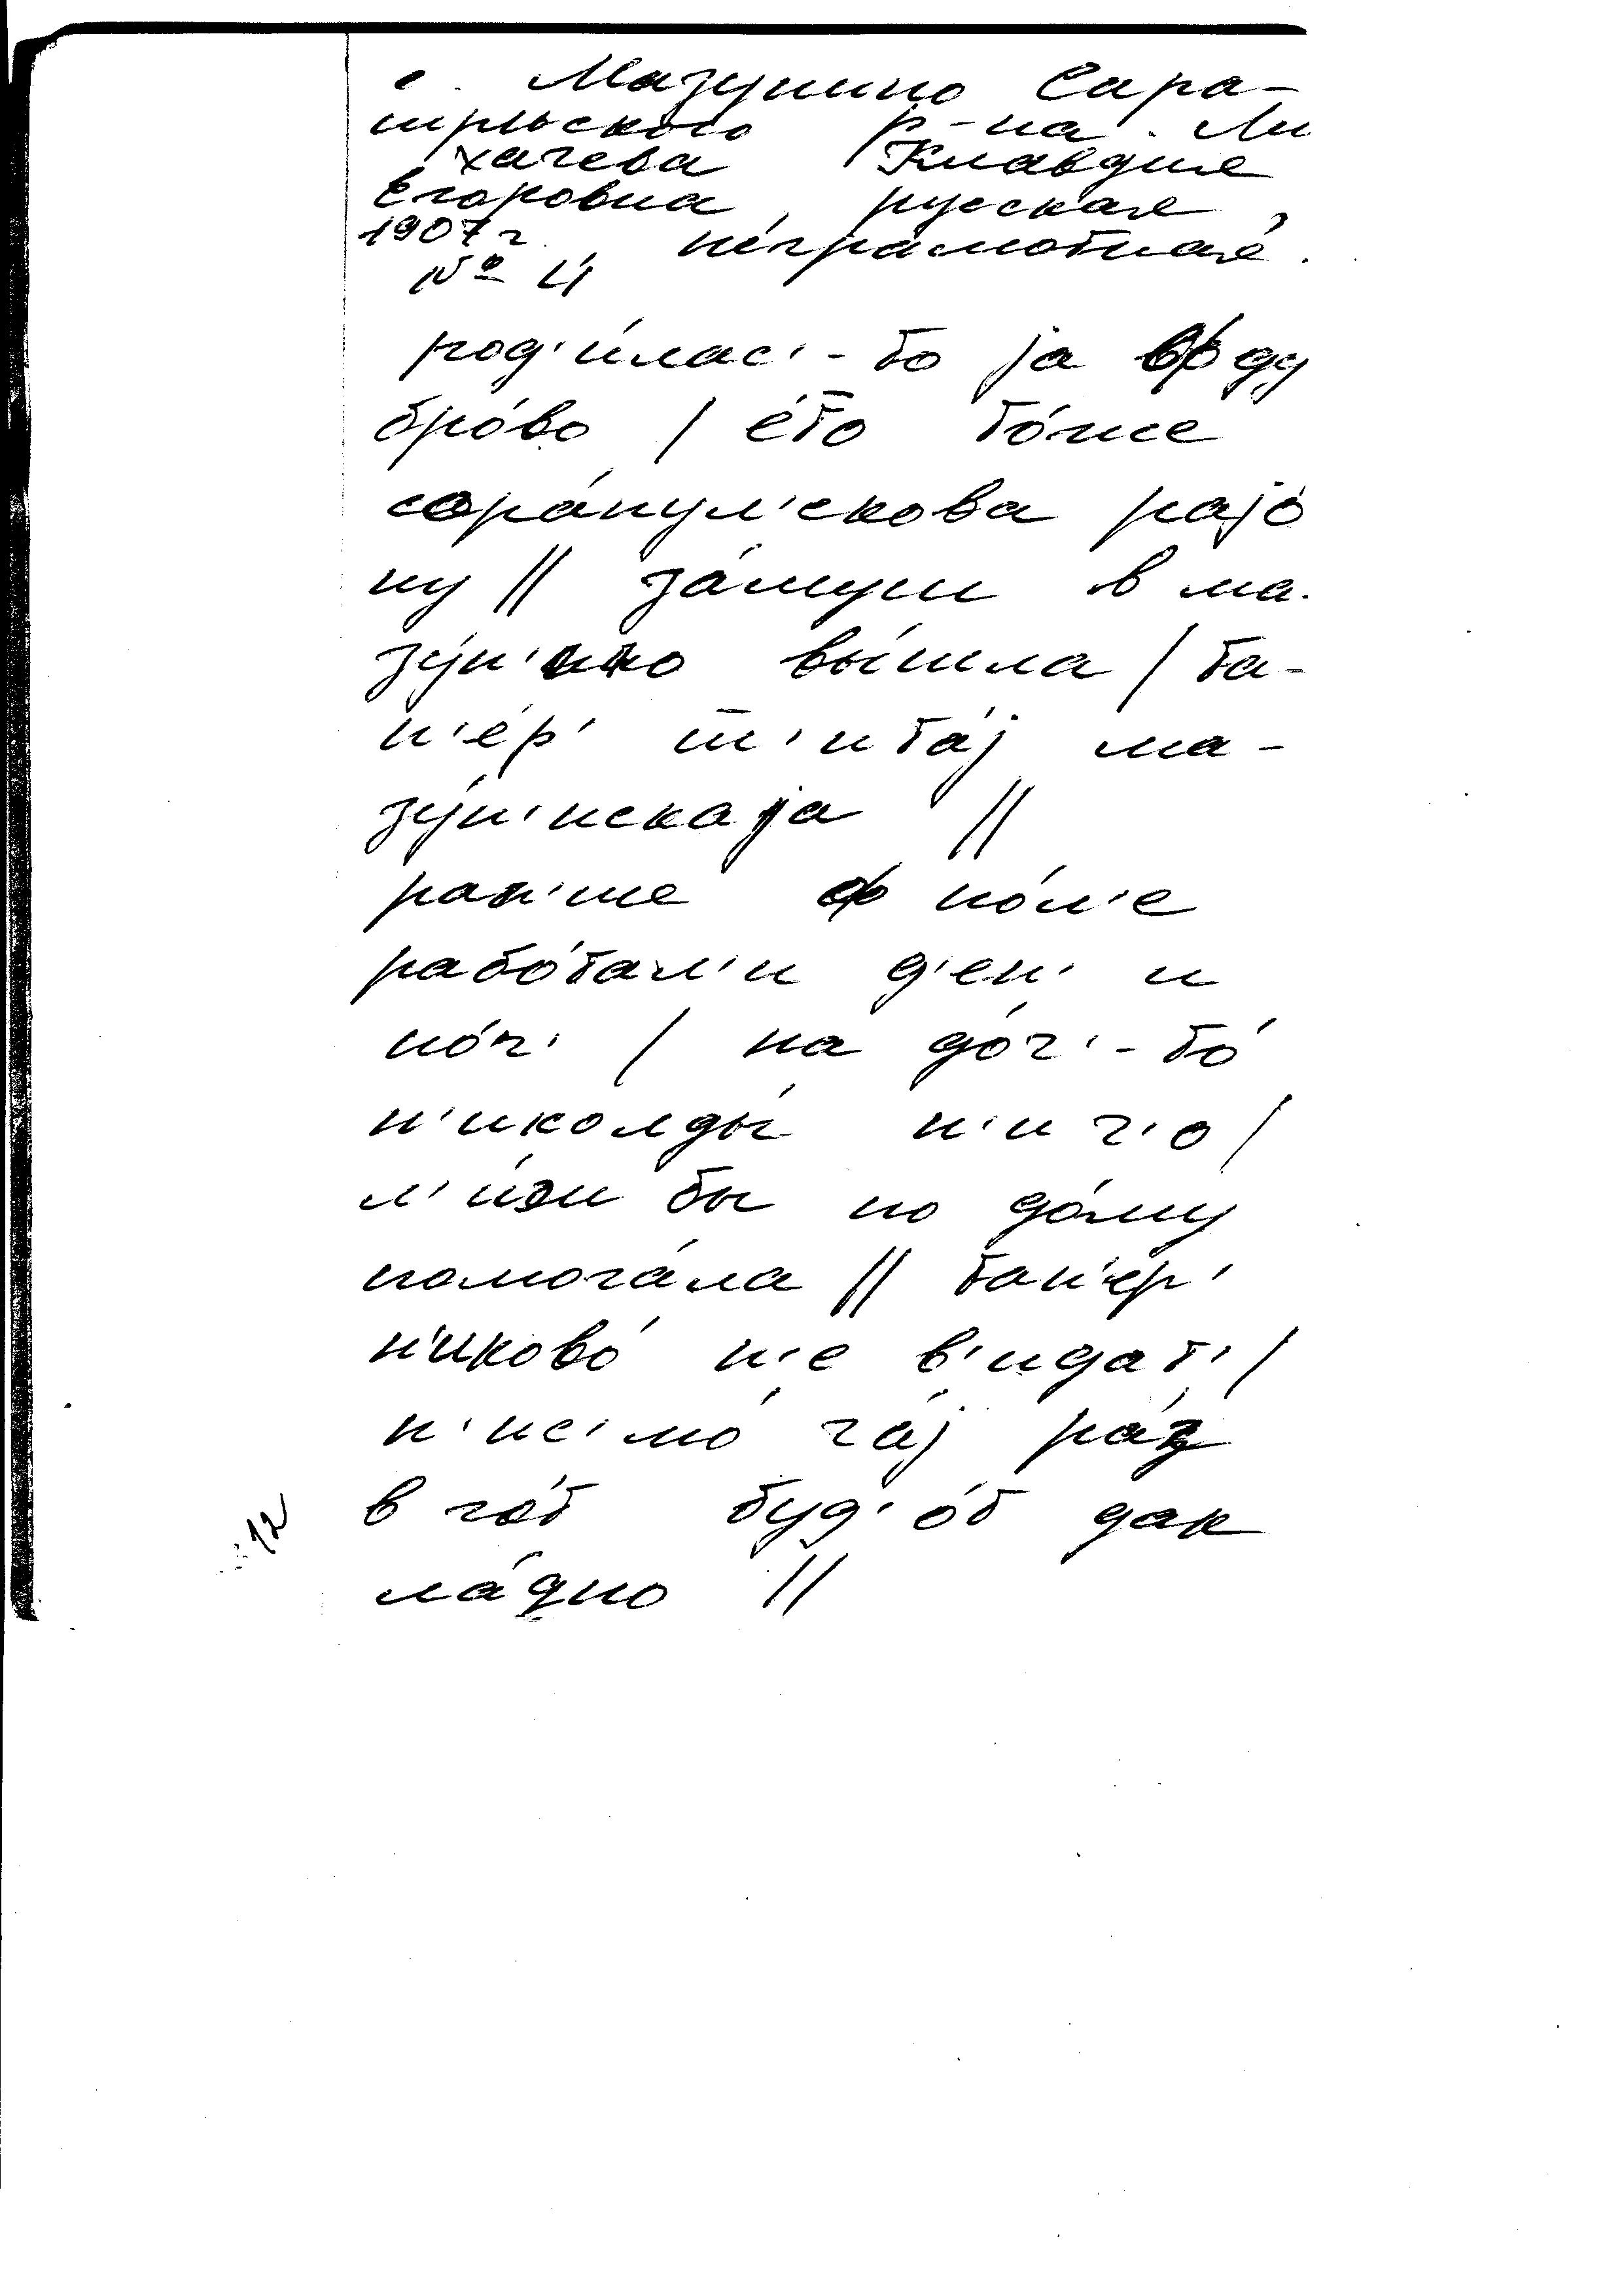 с. Мазунино Сара-
пульского р-на. Ли
хачева Клавдия
Егоровна, русская,
1907 г. неграмотная.
№ 4
род'и́лас'-то ја в ду
бро́во / е́то то́же
сара́пул'скова рајо́
ну // за́муш в ма-
зу́н'ино вы́шла / та-
п'е́р' ш'ита́ј ма-
зу́н'инскаја //
ран'ше ф по́л'е
рабо́тал'и д'ен' и
но́ч' / на до́ч'-то́
н'иколды́ н'и ч'о /
л'и́зи бы по до́му
помога́ла // тап'ер'
н'иково́ н'е в'идат' /
п'ис'мо́ ча́ј ра́з
в го́т буд'о́т дак
ла́дно //
12